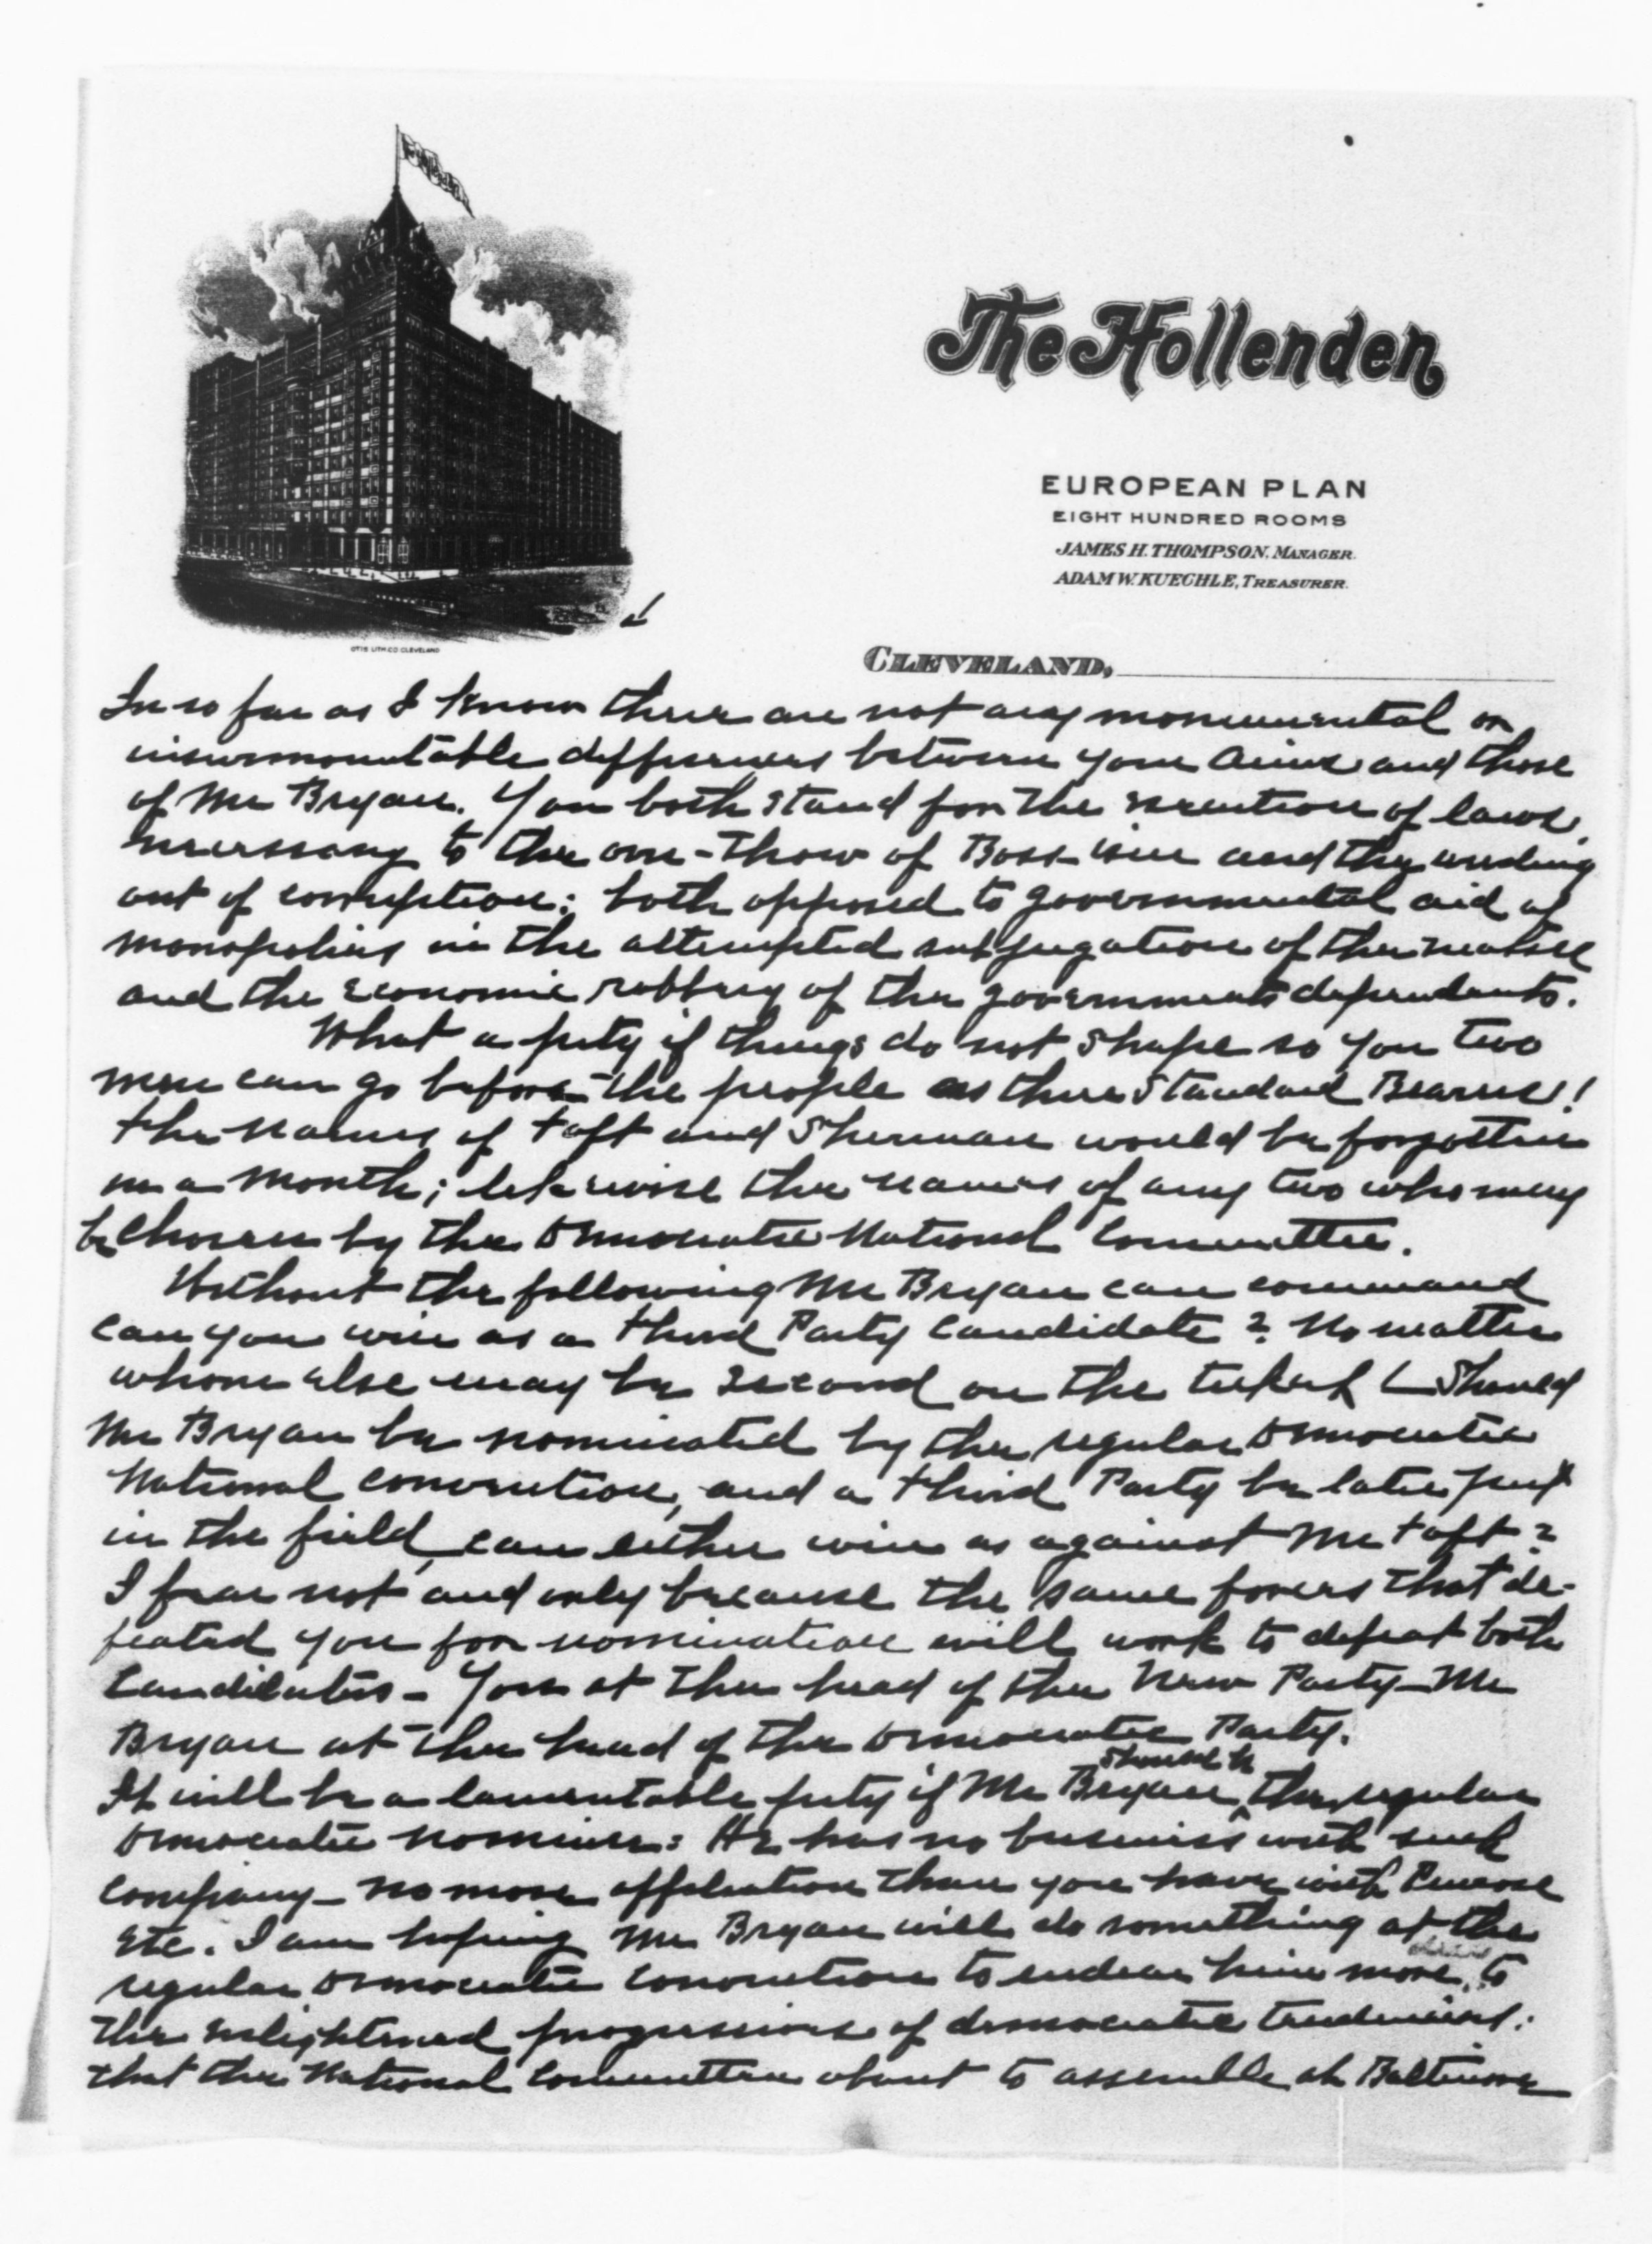 The Hollenden
EUROPEAN PLAN
EIGHT HUNDRED ROOMS
JAMES H. THOMPSON, MANAGER.
ADAM W. KUECHLE, TREASURER.
OTIS LITH. CO. CLEVELAND
CLEVELAND,
In so far as I know there are not any monumental or
insurmountable differences between your aims and those
of Mr Bryan. You both stand for the execution of laws
necessary to the over-throw of Boss-ism and the weeding
out of corruption; both opposed to governmental aid of
monopolies in the attempted subjugation of the
and the economic robbery of the governments dependents.
What a pity if things do not shape so you two
men can go before the people as their Standard Bearers!
the names of Taft and Sherman would be forgotten
in a month; likewise the names of any two who may
be chosen by the Democratic National Committee.
Without the following Mr Bryan can command
can you win as a third Party candidate? No matter
whom else may be second on the ticket Should
Mr Bryan be nominated by the regular Democratic
National convention, and a third Party be later put
in the field, can either win as against Mr Taft?
I fear not and only because the same forces that de-
feated you for nomination will work to defeat both
candidates - You at the head of the New Party - Mr
Bryan at the head of the Democratic Party.
It will be a lamentable pity if Mr Bryan should be the regular
Democratic nominee: He has no business with such
company - no more affiliation than you have with Penrose
etc. I am hoping Mr Bryan will do something at the
regular Democratic convention to endear him more to
the enlightened progressives of democratic tendencies:
that the National Committee about to assemble at Baltimore